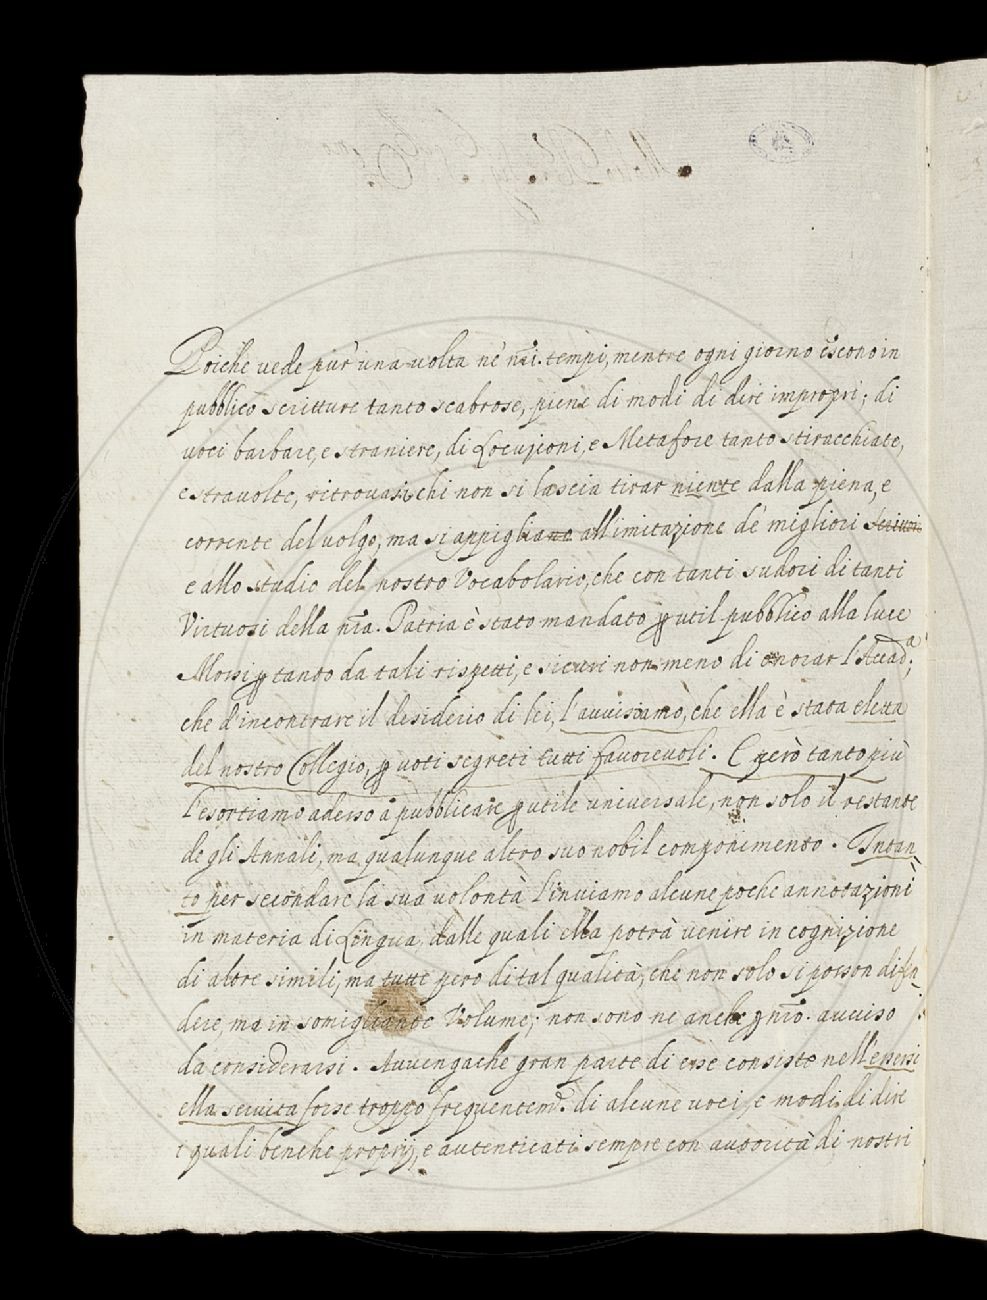 Poiche vede pur una volta ne' nri. tempi, mentre ogni giorno escono in
pubblico scritture tanto scabrose, piene di modi di dire impropri; di
voci barbare, e straniere, di Locuzioni, e Metafore tanto stiracchiate,
e stravolte, ritrovasi chi non si lascia tirar niente dalla piena, e
corrente del volgo, ma si appigliano all'imitazione de' migliori
e allo studio del nostro Vocabolario, che con tanti sudori di tanti
Virtuosi della nra. Patria è stato mandato ꝑ util pubblico alla luce
Mossi ꝑ tanto da tali rispetti, e sicuri non meno di onorar l'Accad.a,
che d'incontrare il desiderio di lei, l'avvisiamo, che ella è stata eletta
del nostro Collegio, ꝑ voti segreti tutti favorevoli. E però tanto più
l'esortiamo adesso à pubblicare ꝑ utile universale, non solo il restante
de gli Annali, ma qualunque altro suo nobil componimento. Intan-
to per secondare la sua volontà l'inviamo alcune poche annotazioni
in materia di Lingua, dalle quali ella potrà venire in cognizione
di altre simili, ma tutte pero di tal qualità, che non solo si posson difen-
dere, ma in somigliante Volume; non sono ne anche ꝑ nro. avviso
da considerarsi. Avvengache gran parte di esse consiste nell'essersi
ella servita forse troppo frequentem.e di alcune voci, e modi di dire
i quali benche proprij, e autenticati sempre con autorità di nostri